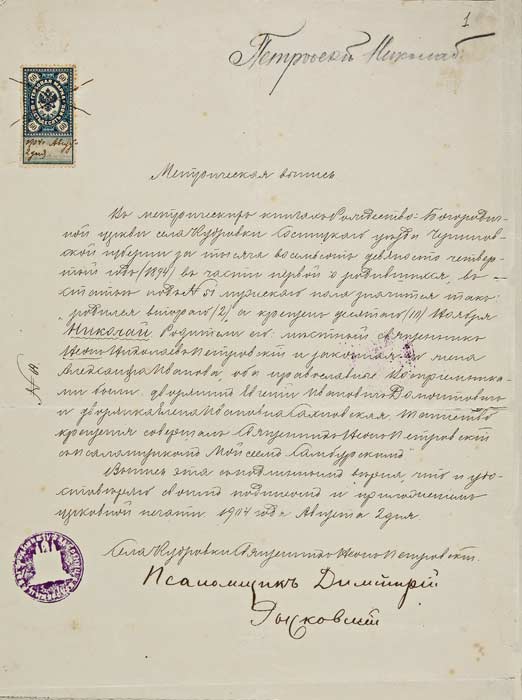 1
Петровскій Николай
60 60
1904 г. Авгус.
2 дня
Метрическая выпись
Въ метрической книгѣ Рождество-Богородич-
ной церкви села Кудровки Сосницкаго уѣзда Чернигов-
ской губерніи за тысяча восемьсотъ девяносто четвер-
тый годъ (1894) въ части первой о родившихся, въ
статьѣ подъ № 51 мужескаго пола значится такъ:
„родился второго /2/, а крещенъ десятаго /10/ Ноября
Николай. Родители его: мѣстный священникъ
Іоаннъ Николаевъ Петровскій и законная его жена
Александра Иванова, оба православные. Воспріемника-
ми были: дворянинъ Евгеній Ивановичъ
и дворянка Елена Ивановна Сахновская. Таинство
крещенія совершалъ Священникъ Іоаннъ Петровскій
съ псаломщикомъ Моисеемъ Самбурскимъ".
Выпись эта съ подлинною вѣрна, что и удо-
стовѣряю своимъ подписомъ и приложеніемъ
церковной печати. 1904 года Августа 2 дня.
Села Кудровки Священникъ Іоаннъ Петровскій.
Псаломщикъ Димитрій
№ 19.